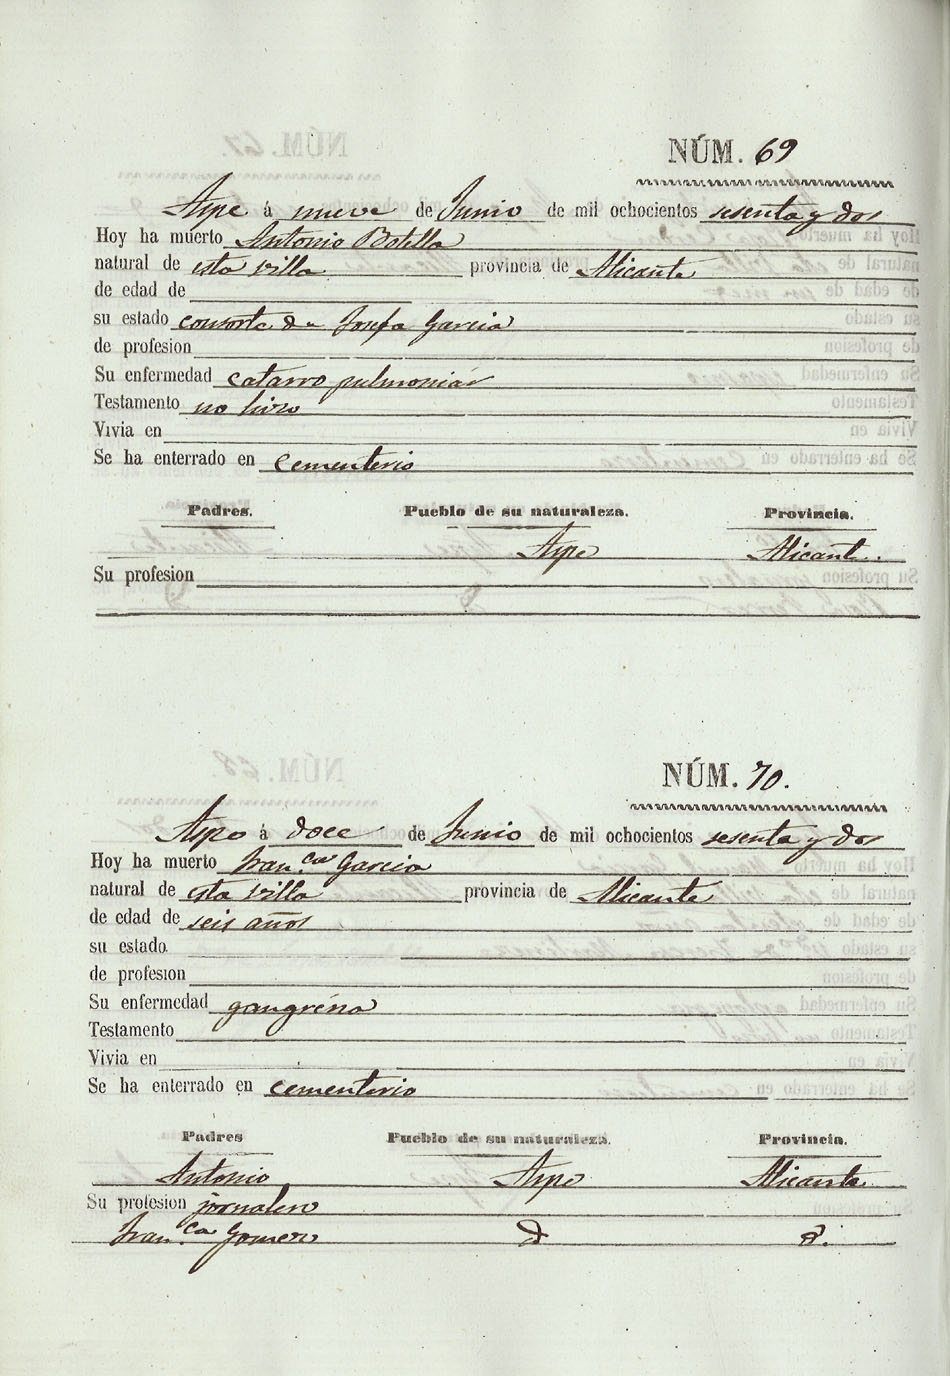 NÚM. 69
Aspe á nueve de Junio de mil ochocientos sesenta y dos
Hoy ha muerto Antonio Botella
natural de esta villa provincia de Alicante
de edad de
su estado consorte de Josefa Garcia
de profesion
Su enfermedad catarro pulmoniar
Testamento no hizo
Vivia en
Se ha enterrado en cementerio
Padres. Pueblo de su naturaleza. Provincia.
Aspe Alicante.
Su profesion
NÚM. 70.
Aspe á doce de Junio de mil ochocientos sesenta y dos
Hoy ha muerto Fran.ca Garcia
natural de esta villa provincia de Alicante
de edad de seis años
su estado
de profesion
Su enfermedad gangréna
Testamento
Vivia en
Se ha enterrado en cementerio
Padres Pueblo de su naturaleza. Provincia.
Antonio Aspe Alicante
Su profesion jornalero
Fran.ca d d.